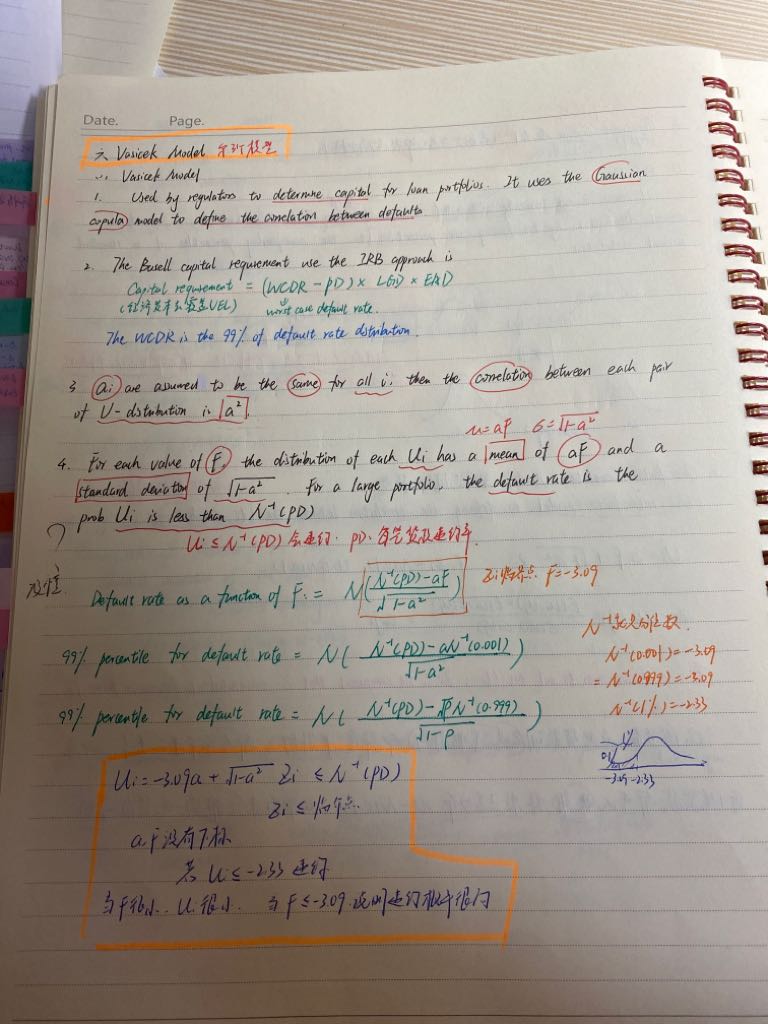 Date. Page.
六 Vasicek Model 分析模型
Vasicek Model
1. Used by regulators to determine capital for loan portfolios. It uses the Gaussian
copula model to define the correlation between defaults
2. The Basell capital requirement use the IRB approach is
Capital requirement = (WCDR - PD) × LGD × EAD
(经济资本 UEL) worst case default rate.
The WCDR is the 99% of default rate distribution.
3 ai are assumed to be the same for all i. then the correlation between each pair
of U-distribution is a²
u=aF б=√1-a²
4. For each value of F, the distribution of each Ui has a mean of aF and a
standard deviation of √1-a². For a large portfolio, the default rate is the
prob Ui is less than N⁻¹(PD)
Ui ≤ N⁻¹(PD) 会违约. PD.每笔贷款违约率.
Default rate as a function of F = N((N⁻¹(PD)-aF)/√1-a²) Zi临界点 F=-3.09
N⁻¹就是分位数.
99% percentile for default rate = N((N⁻¹(PD)-aN⁻¹(0.001))/√1-a²)
N⁻¹(0.001)=-3.09
= N⁻¹(0.999)=-3.09
99% percentile for default rate = N((N⁻¹(PD)-√ρN⁻¹(0.999))/√1-ρ)
N⁻¹(1%)=-2.33
-3.09 -2.33
Ui=-3.09a+√1-a² Zi ≤ N⁻¹(PD)
Zi ≤ 临界点.
a.F没有下标
若 Ui≤-2.33 违约
当F很小.. Ui很小. 当 F≤-3.09.说明违约概率很高